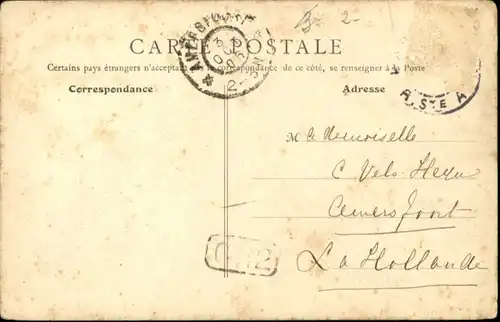 CARTE POSTALE
Certains pays étrangers n'acceptant pas de correspondance de ce côté, se renseigner à la Poste
Correspondance
Adresse
AMERSFOORT
2
Mademoiselle
C Vels Heyn
Amersfoort
La Hollande